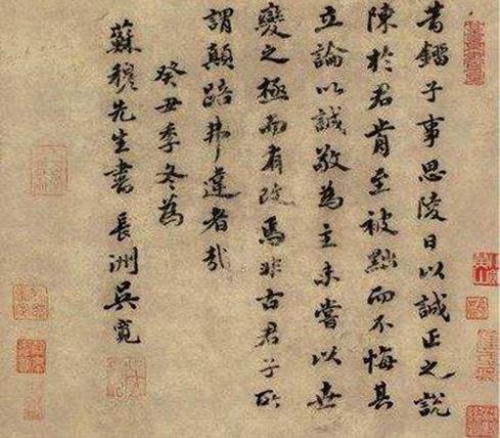 昔鐂子事思陵日以誠正之說
陳於君肯至被黜而不悔其
立論以誠敬為主未嘗以世
變之極而有改焉非古君子所
謂顛踣弗違者哉
癸丑季冬為
蘇穆先生書 長洲吳寬